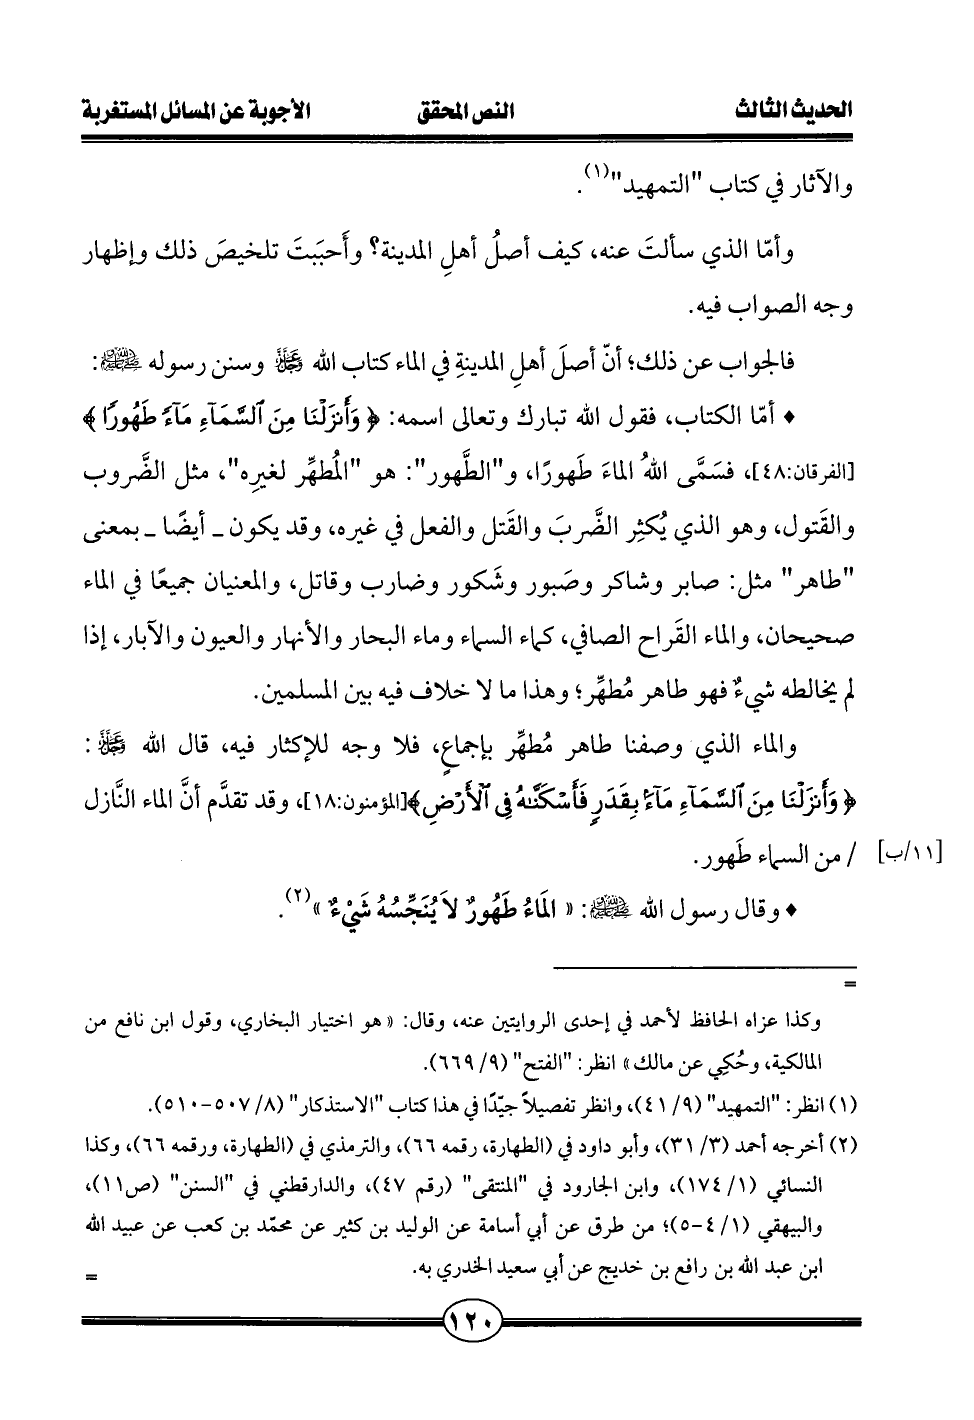 الحديث الثالث النص المحقق الأجوبة عن المسائل المستغربة
والآثار في كتاب "التمهيد"(١).
وأمّا الذي سألتَ عنه، كيف أصلُ أهلِ المدينة؟ وأَحبَبتَ تلخيصَ ذلك وإظهار
وجه الصواب فيه.
فالجواب عن ذلك؛ أنّ أصلَ أهلِ المدينةِ في الماء كتاب الله ﷻ وسنن رسوله ﷺ:
♦ أمّا الكتاب، فقول الله تبارك وتعالى اسمه: ﴿ وَأَنزَلْنَا مِنَ ٱلسَّمَآءِ مَآءً طَهُورًا ﴾
[الفرقان:٤٨]، فسَمَّى اللهُ الماءَ طَهورًا، و"الطَّهور": هو "المُطهِّر لغيرِه"، مثل الضَّروب
والقَتول، وهو الذي يُكثِر الضَّربَ والقَتل والفعل في غيره، وقد يكون ـ أيضًا ـ بمعنى
"طاهر" مثل: صابر وشاكر وصَبور وشَكور وضارب وقاتل، والمعنيان جميعًا في الماء
صحيحان، والماء القَراح الصافي، كماء السماء وماء البحار والأنهار والعيون والآبار، إذا
لم يخالطه شيءٌ فهو طاهر مُطهِّر؛ وهذا ما لا خلاف فيه بين المسلمين.
والماء الذي وصفنا طاهر مُطهِّر بإجماعٍ، فلا وجه للإكثار فيه، قال الله ﷻ:
﴿ وَأَنزَلْنَا مِنَ ٱلسَّمَآءِ مَآءًۢ بِقَدَرٍ فَأَسْكَنَّـٰهُ فِى ٱلْأَرْضِ﴾[المؤمنون:١٨]، وقد تقدَّم أنَّ الماء النَّازل
/ من السماء طَهور. [١١/ب]
♦ وقال رسول الله ﷺ: « المَاءُ طَهُورٌ لاَ يُنَجِّسُهُ شَيْءٌ »(٢).
=
وكذا عزاه الحافظ لأحمد في إحدى الروايتين عنه، وقال: « هو اختيار البخاري، وقول ابن نافع من
المالكية، وحُكِي عن مالك » انظر: "الفتح" (٩/ ٦٦٩).
(١) انظر: "التمهيد" (٩/ ٤١)، وانظر تفصيلاً جيّدًا في هذا كتاب "الاستذكار" (٨/ ٥٠٧-٥١٠).
(٢) أخرجه أحمد (٣/ ٣١)، وأبو داود في (الطهارة، رقمه ٦٦)، والترمذي في (الطهارة، ورقمه ٦٦)، وكذا
النسائي (١/ ١٧٤)، وابن الجارود في "المنتقى" (رقم ٤٧)، والدارقطني في "السنن" (ص١١)،
والبيهقي (١/ ٤-٥)؛ من طرق عن أبي أسامة عن الوليد بن كثير عن محمّد بن كعب عن عبيد الله
ابن عبد الله بن رافع بن خديج عن أبي سعيد الخدري به.
=
١٢٠